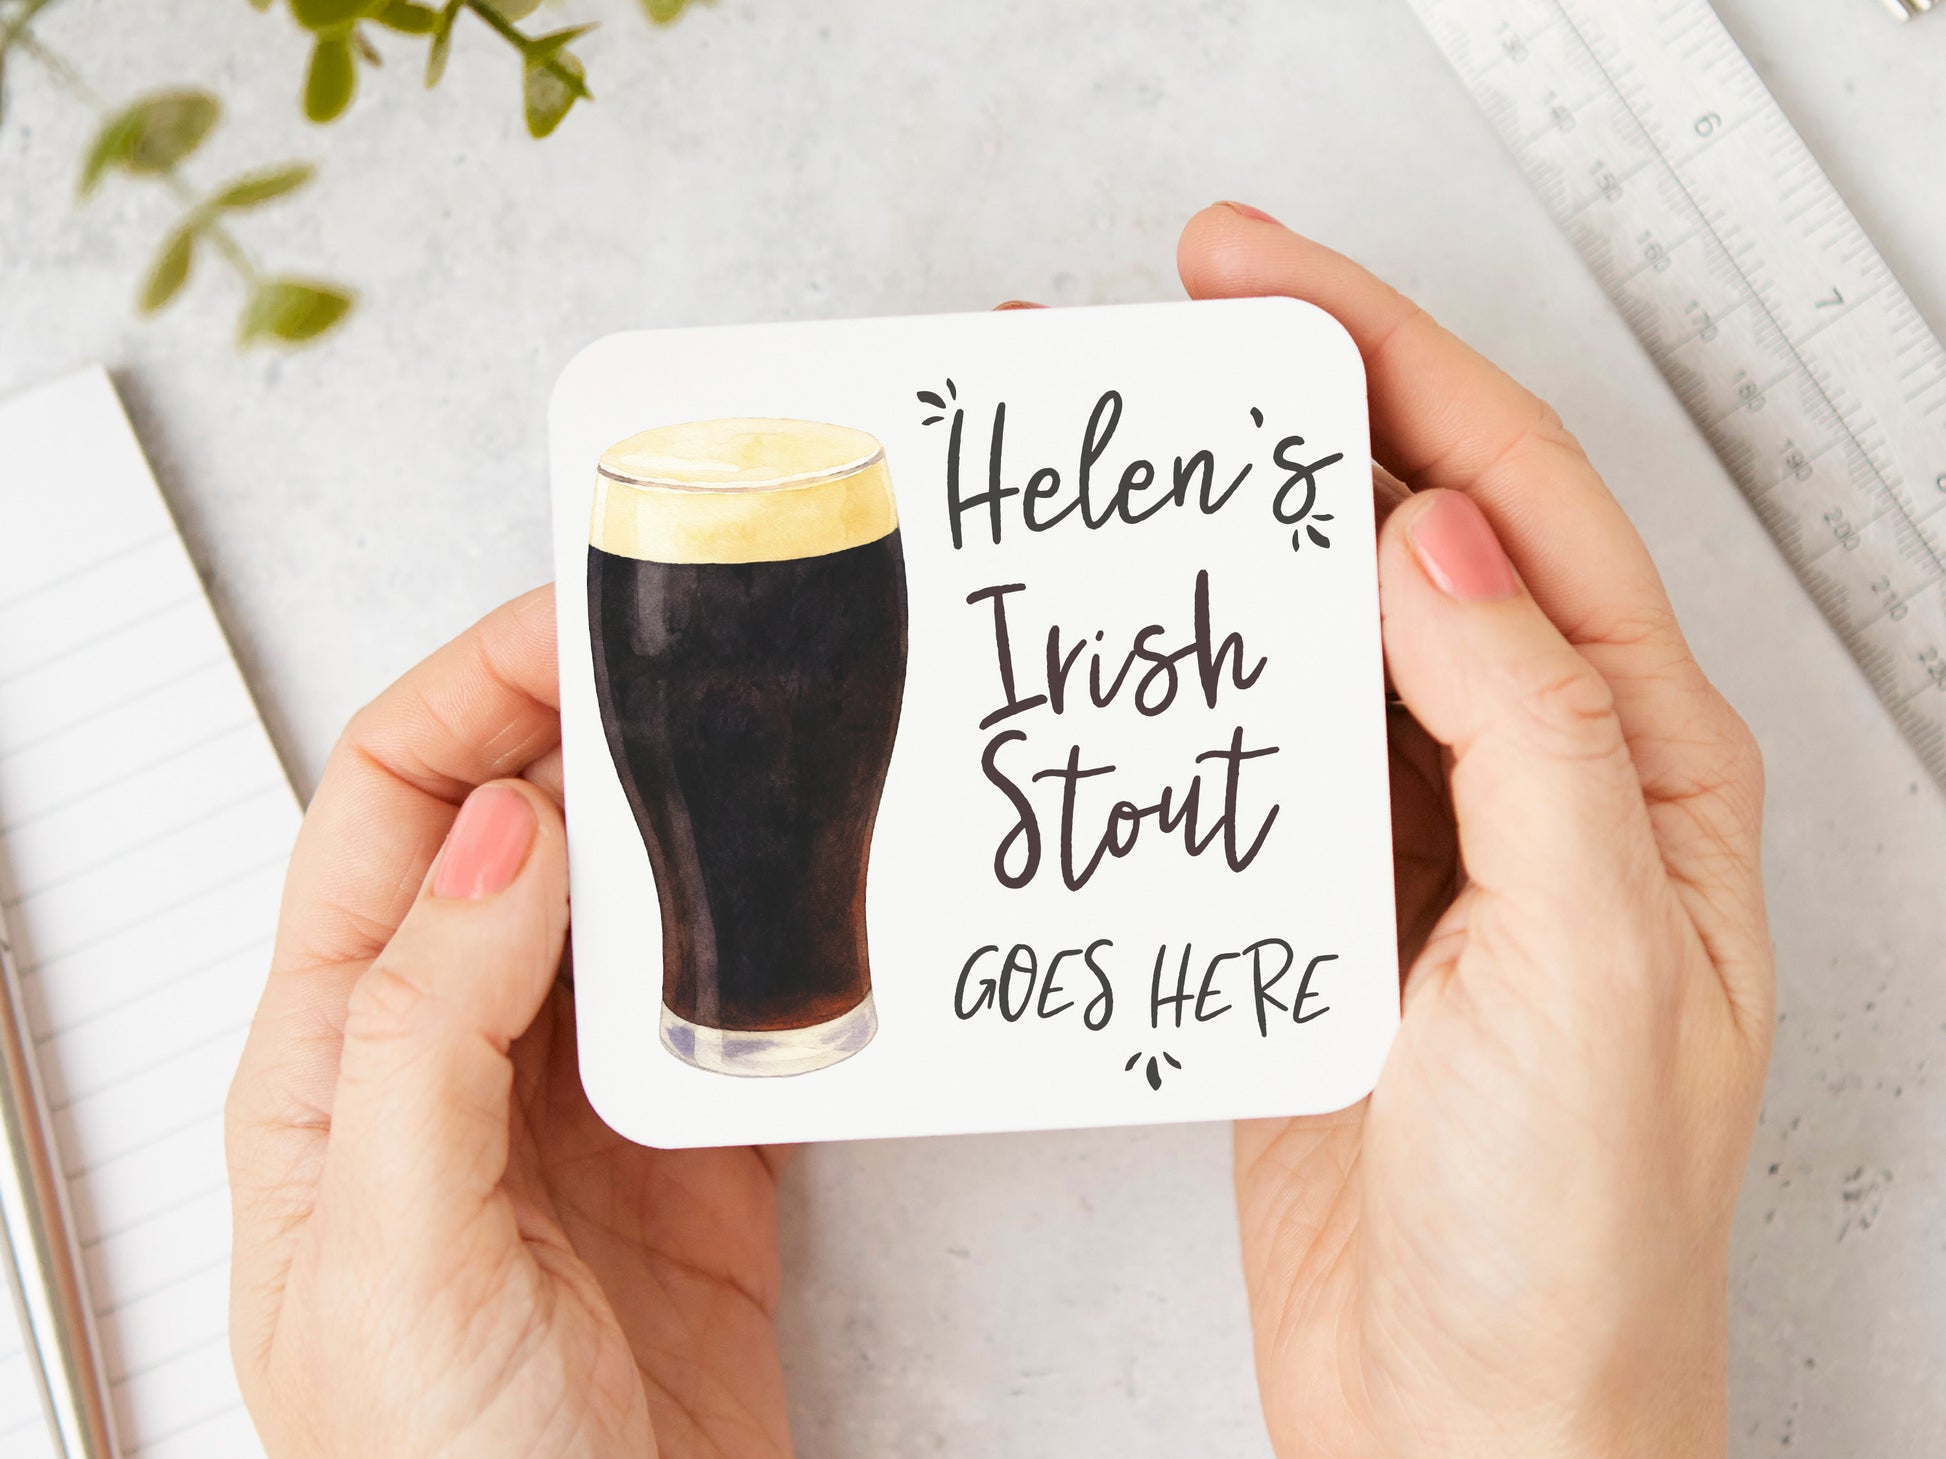 Helen's
Irish
Stout
GOES HERE
130
140
150
160
170
180
190
200
210
220
6
7